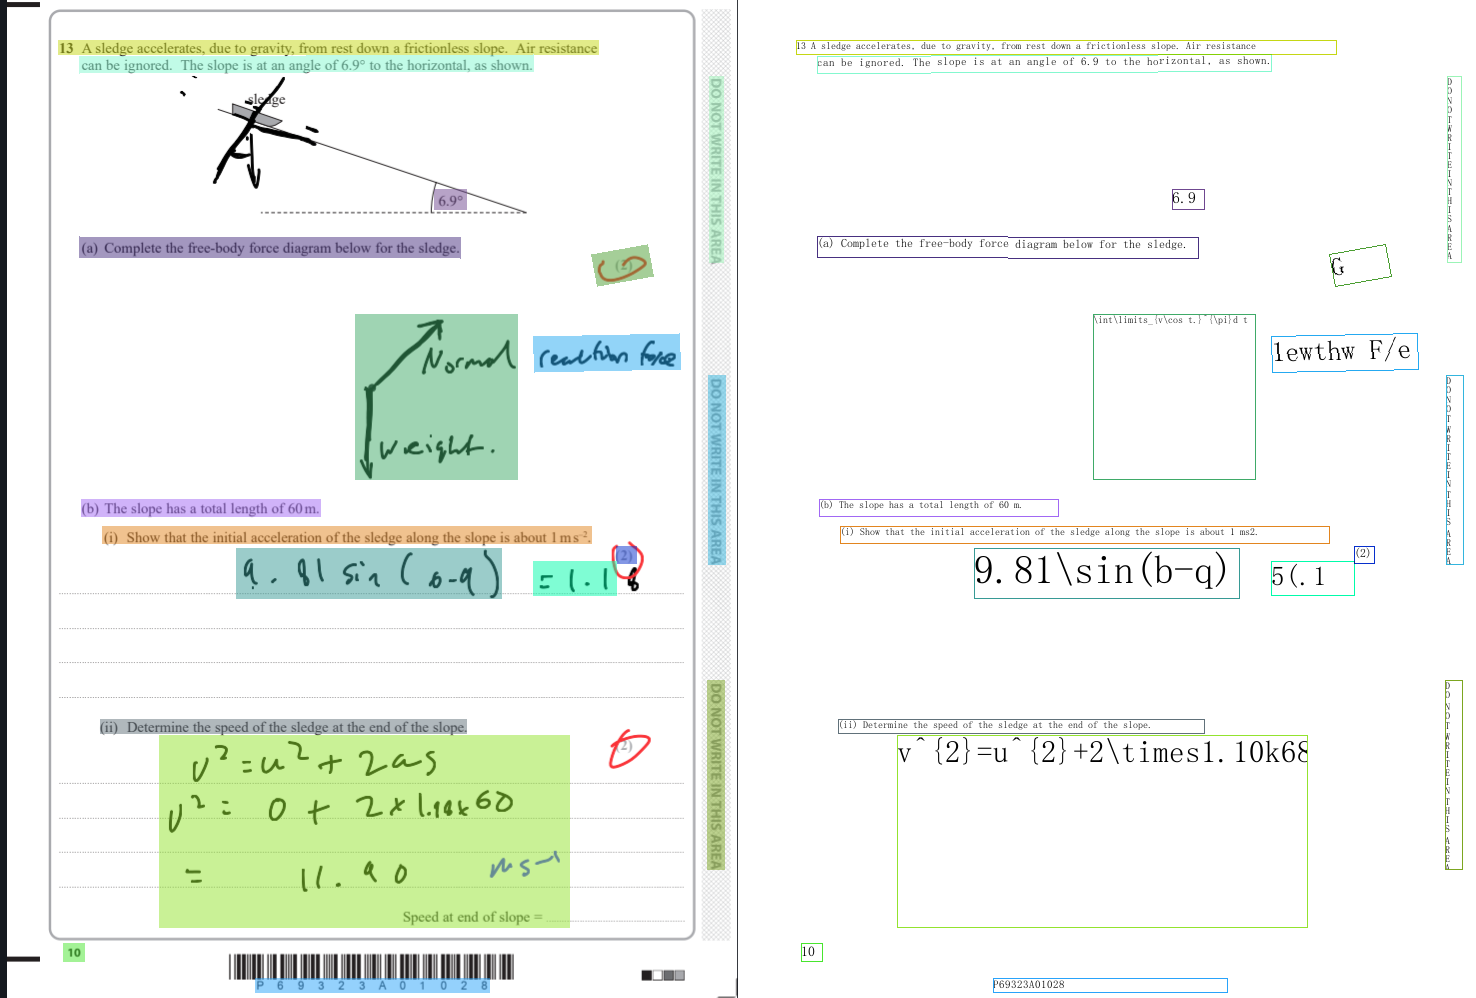 13 A sledge accelerates, due to gravity, from rest down a frictionless slope. Air resistance
can be ignored. The slope is at an angle of 6.9° to the horizontal, as shown.
sledge
6.9°
(a) Complete the free-body force diagram below for the sledge.
(2)
Normal reaction force
Weight.
(b) The slope has a total length of 60 m.
(i) Show that the initial acceleration of the sledge along the slope is about 1 m s⁻².
(2)
9.81 sin (6.9) = 1.18
(ii) Determine the speed of the sledge at the end of the slope.
(2)
v² = u² + 2as
v² = 0 + 2 × 1.18 × 60
= 11.90 ms⁻¹
Speed at end of slope =
10
P69323A01028
DO NOT WRITE IN THIS AREA
DO NOT WRITE IN THIS AREA
DO NOT WRITE IN THIS AREA
13 A sledge accelerates, due to gravity, from rest down a frictionless slope. Air resistance
can be ignored. The slope is at an angle of 6.9 to the horizontal, as shown.
6.9
(a) Complete the free-body force diagram below for the sledge.
G
\int\limits_{v\cos t.}^{\pi}d t
1ewthw F/e
(b) The slope has a total length of 60 m.
(i) Show that the initial acceleration of the sledge along the slope is about 1 ms2.
(2)
9.81\sin(b-q)
5(.1
(ii) Determine the speed of the sledge at the end of the slope.
v^{2}=u^{2}+2\times1.10k68
10
P69323A01028
DO NOT WRITE IN THIS AREA
DO NOT WRITE IN THIS AREA
DO NOT WRITE IN THIS AREA